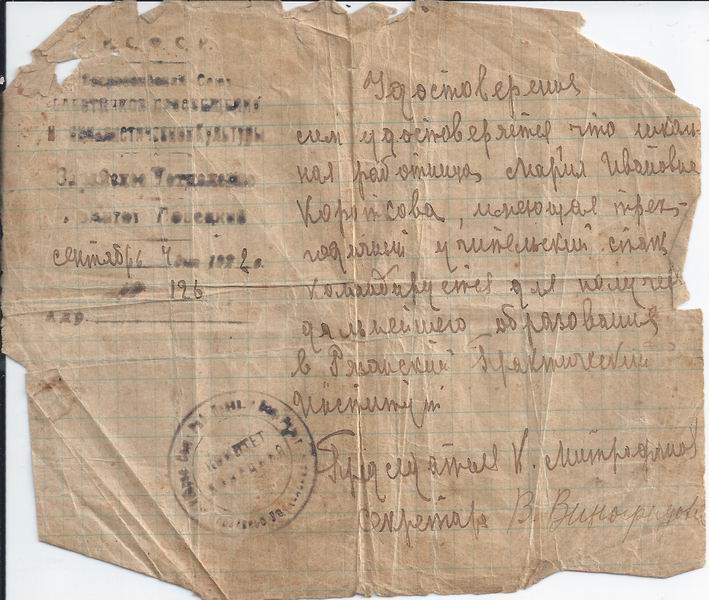 Р. С. Ф. С. Р.
Всероссийский Союз
работников просвещения
и социалистической Культуры
сентябрь 4 дня 1922 г.
№ 126
Удостоверения
сим удостоверяется что школь-
ная работница Мария Ивановна
Короткова, имеющая трех-
годичный учительский стаж
командируется для получен
дальнейшего образования
в Рязанский Практический
Институт
Председатель К. Митрофанов
секретарь В. Виноградов
КОМИТЕТ